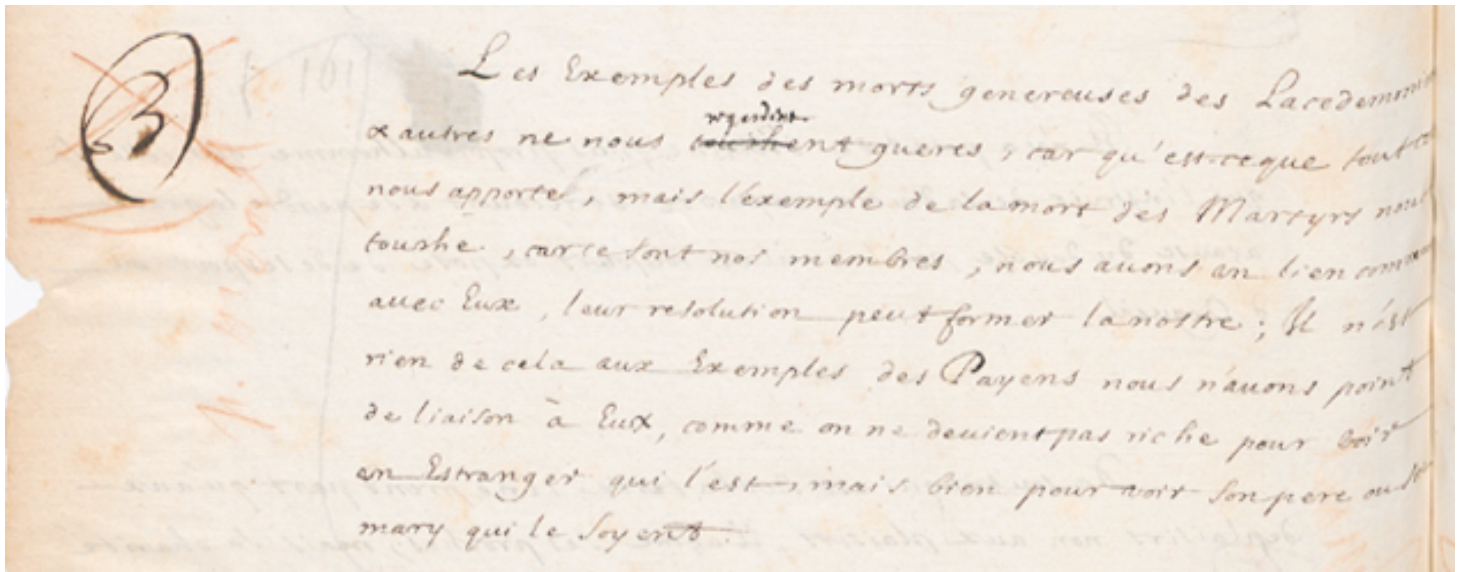 3
Les Exemples des morts genereuses des Lacedemoni
& autres ne nous touchent gueres, car qu'est-ceque tout ce
nous apporte, mais l'exemple de la mort des Martyrs nous
touche, car ce sont nos membres, nous auons un lien commun
auec Eux, leur resolution peut former la nostre; Il n'est
rien de cela aux Exemples des Payens nous n'auons point
de liaison à Eux, comme on ne deuient pas riche pour voir
un Estranger qui l'est, mais bien pour voir son pere ou se
mary qui le soyent.